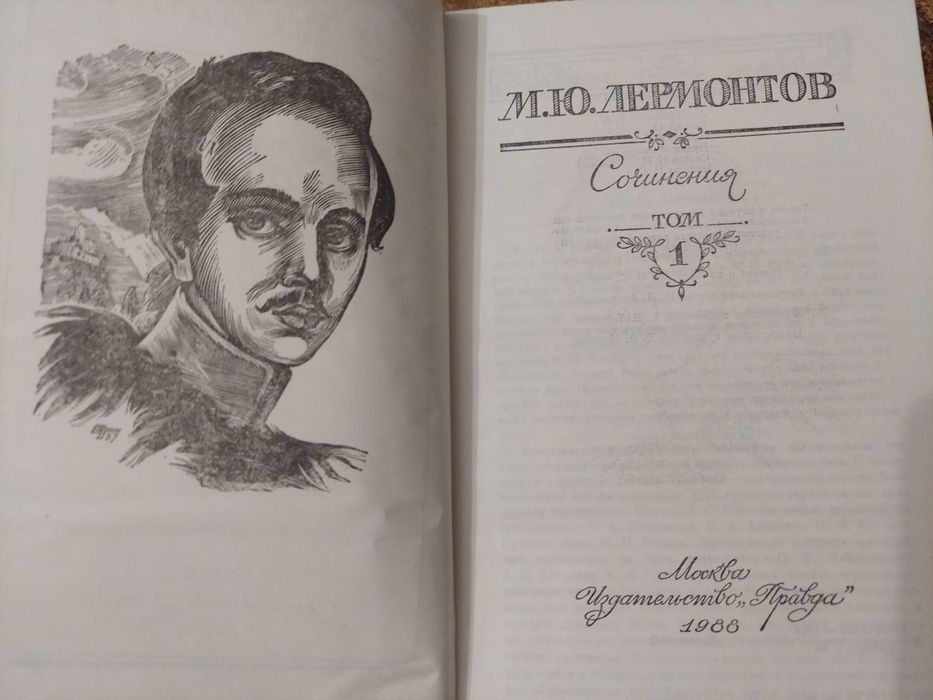 М.Ю.ЛЕРМОНТОВ
Сочинения
ТОМ
1
Москва
Издательство „Правда"
1988